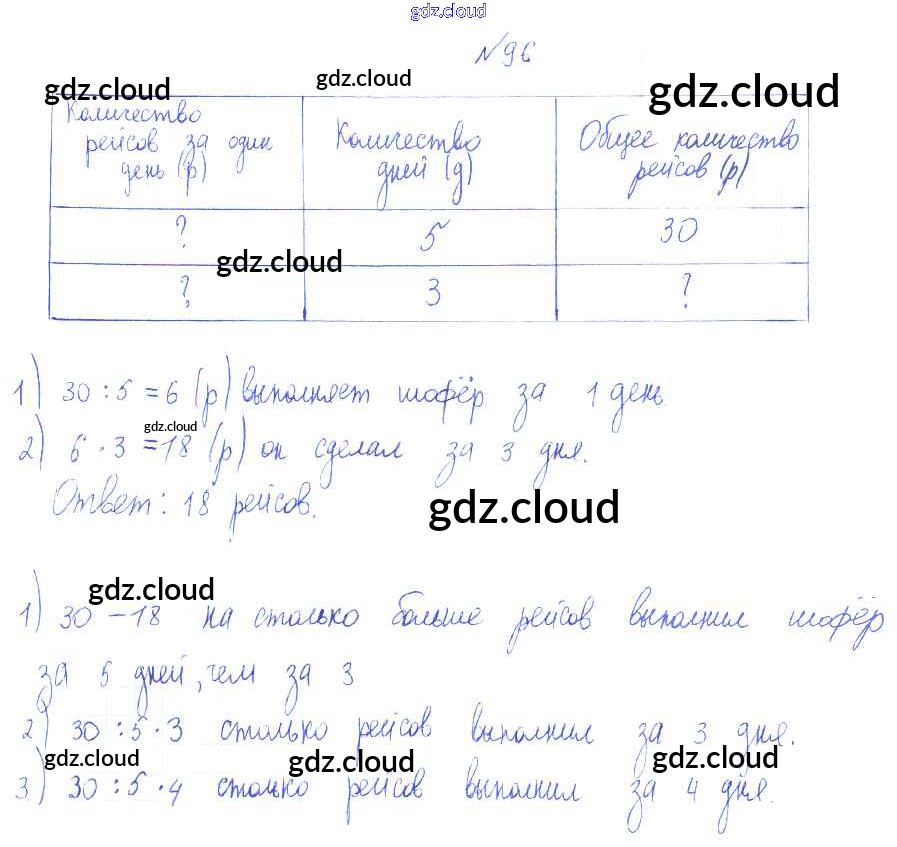 gdz.cloud
№96
gdz.cloud gdz.cloud gdz.cloud
Количество рейсов за один день (р) Количество дней (д) Общее количество рейсов (р)
? 5 30
gdz.cloud
? 3 ?
1) 30 : 5 = 6 (р) выполняет шофёр за 1 день.
gdz.cloud
2) 6 · 3 = 18 (р) он сделал за 3 дня.
Ответ: 18 рейсов.
gdz.cloud
gdz.cloud
1) 30 – 18 на столько больше рейсов выполнил шофёр
за 5 дней, чем за 3
2) 30 : 5 · 3 столько рейсов выполнил за 3 дня.
gdz.cloud gdz.cloud gdz.cloud
3) 30 : 5 · 4 столько рейсов выполнил за 4 дня.